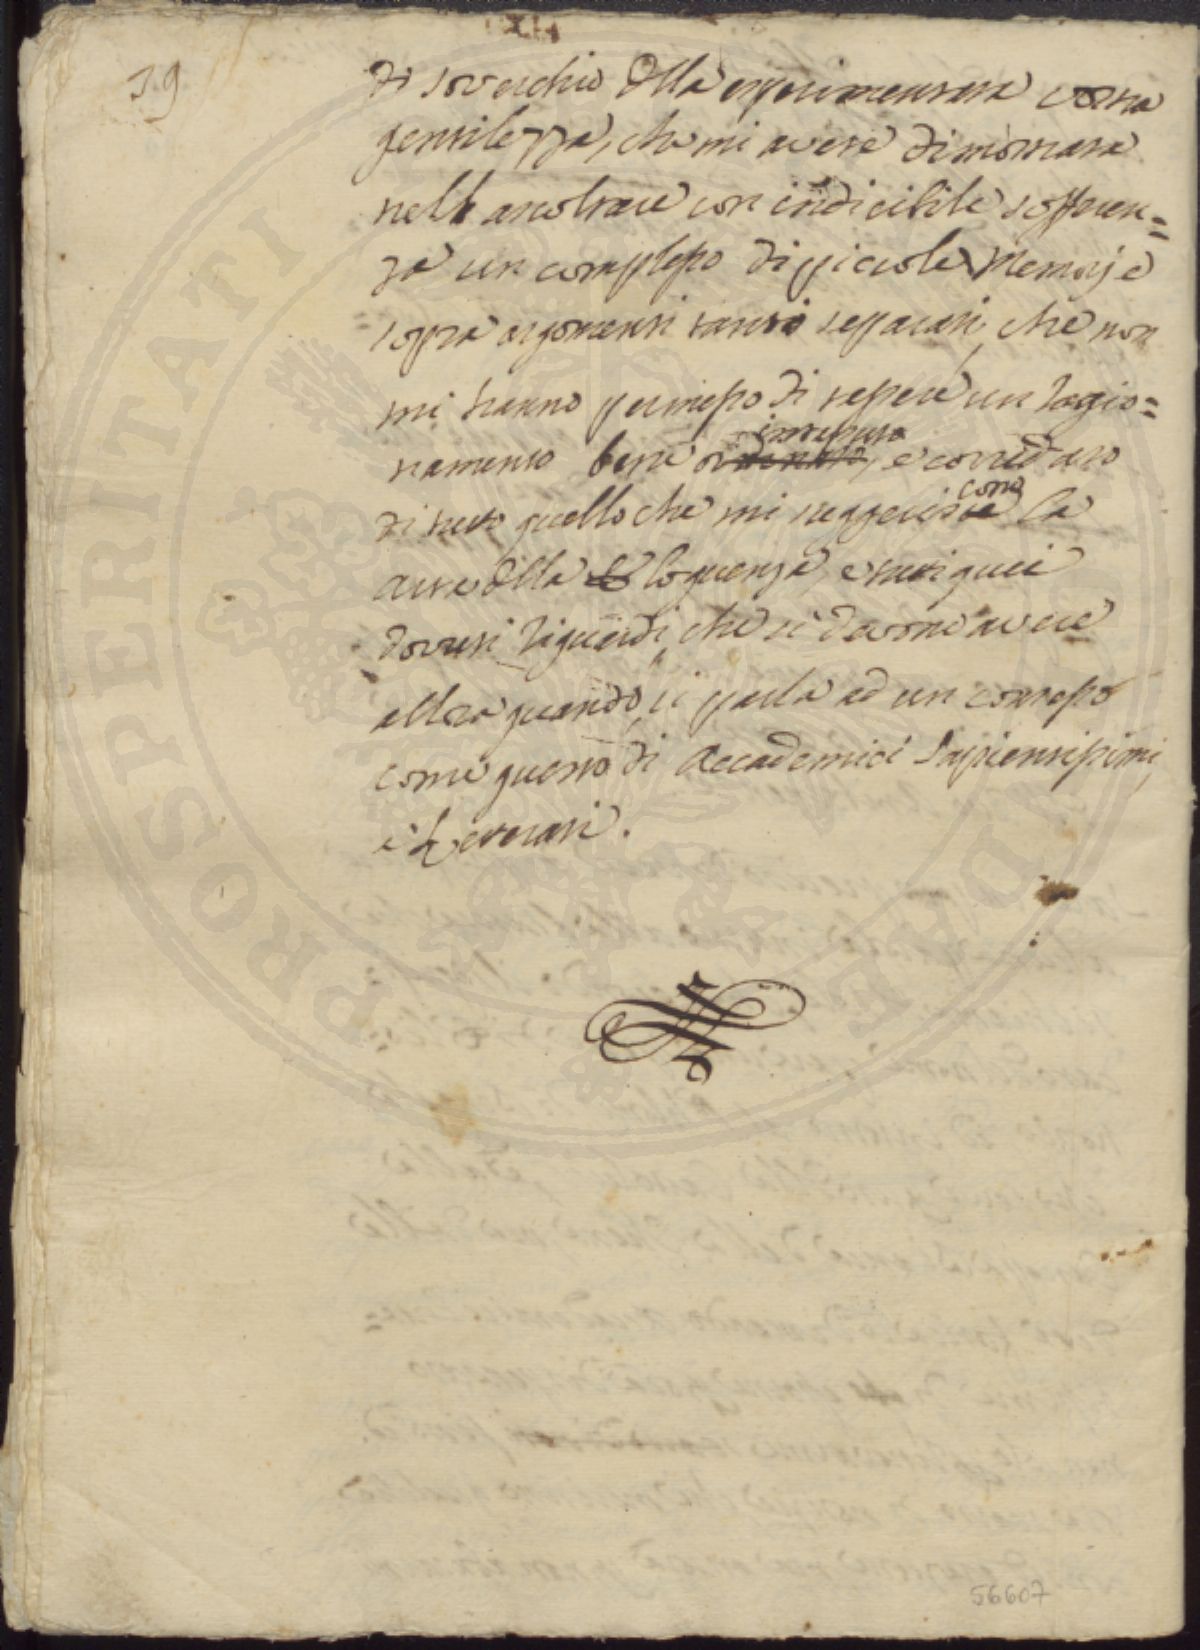 39
di soverchio della esperimentata vostra
gentilezza, che mi avete dimostrata
nell ascoltare con indicibile sofferen=
za un complesso di piccole Memorje
sopra argomenti tanto separati, che non
mi hanno permesso di tessere un ragio=
intessuto
namento bene ordinato, e corredato
di tutto quello che mi suggerisce
la
arte della Eloquenza, e tutti quei
dovuti riguardi, che si devono avere
allora quando si parla ad un consesso
come questo di Accademici Sapientissimi,
e Letterati.
56607
PROSPERITATI